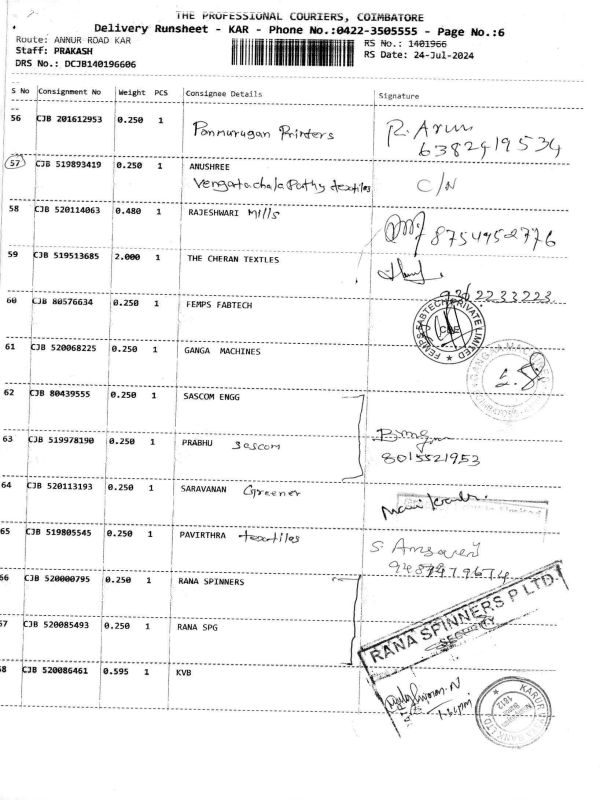 THE PROFESSIONAL COURIERS, COIMBATORE
Delivery Runsheet - KAR - Phone No.:0422-3505555 - Page No.:6
Route: ANNUR ROAD KAR
RS No.: 1401966
Staff: PRAKASH
RS Date: 24-Jul-2024
DRS No.: DCJB140196606
S No Consignment No Weight PCS Consignee Details Signature
56 CJB 201612953 0.250 1 Ponnurugan Printers R. Arun
6382419534
57 CJB 519893419 0.250 1 ANUSHREE
Vengatachalapathy textiles C/N
58 CJB 520114063 0.480 1 RAJESHWARI Mills 8754952776
59 CJB 519513685 2.000 1 THE CHERAN TEXTLES
9362233223
60 CJB 80576634 0.250 1 FEMPS FABTECH FEMPS FABTECH PRIVATE LIMITED CBE
61 CJB 520068225 0.250 1 GANGA MACHINES
62 CJB 80439555 0.250 1 SASCOM ENGG
63 CJB 519978190 0.250 1 PRABHU Sascom
8015521953
64 CJB 520113193 0.250 1 SARAVANAN Greener
65 CJB 519805545 0.250 1 PAVIRTHRA textiles
66 CJB 520000795 0.250 1 RANA SPINNERS
67 CJB 520085493 0.250 1 RANA SPG
RANA SPINNERS P LTD.
SECURITY
68 CJB 520086461 0.595 1 KVB
1612